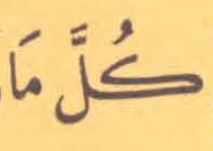 كُلَّ مَا